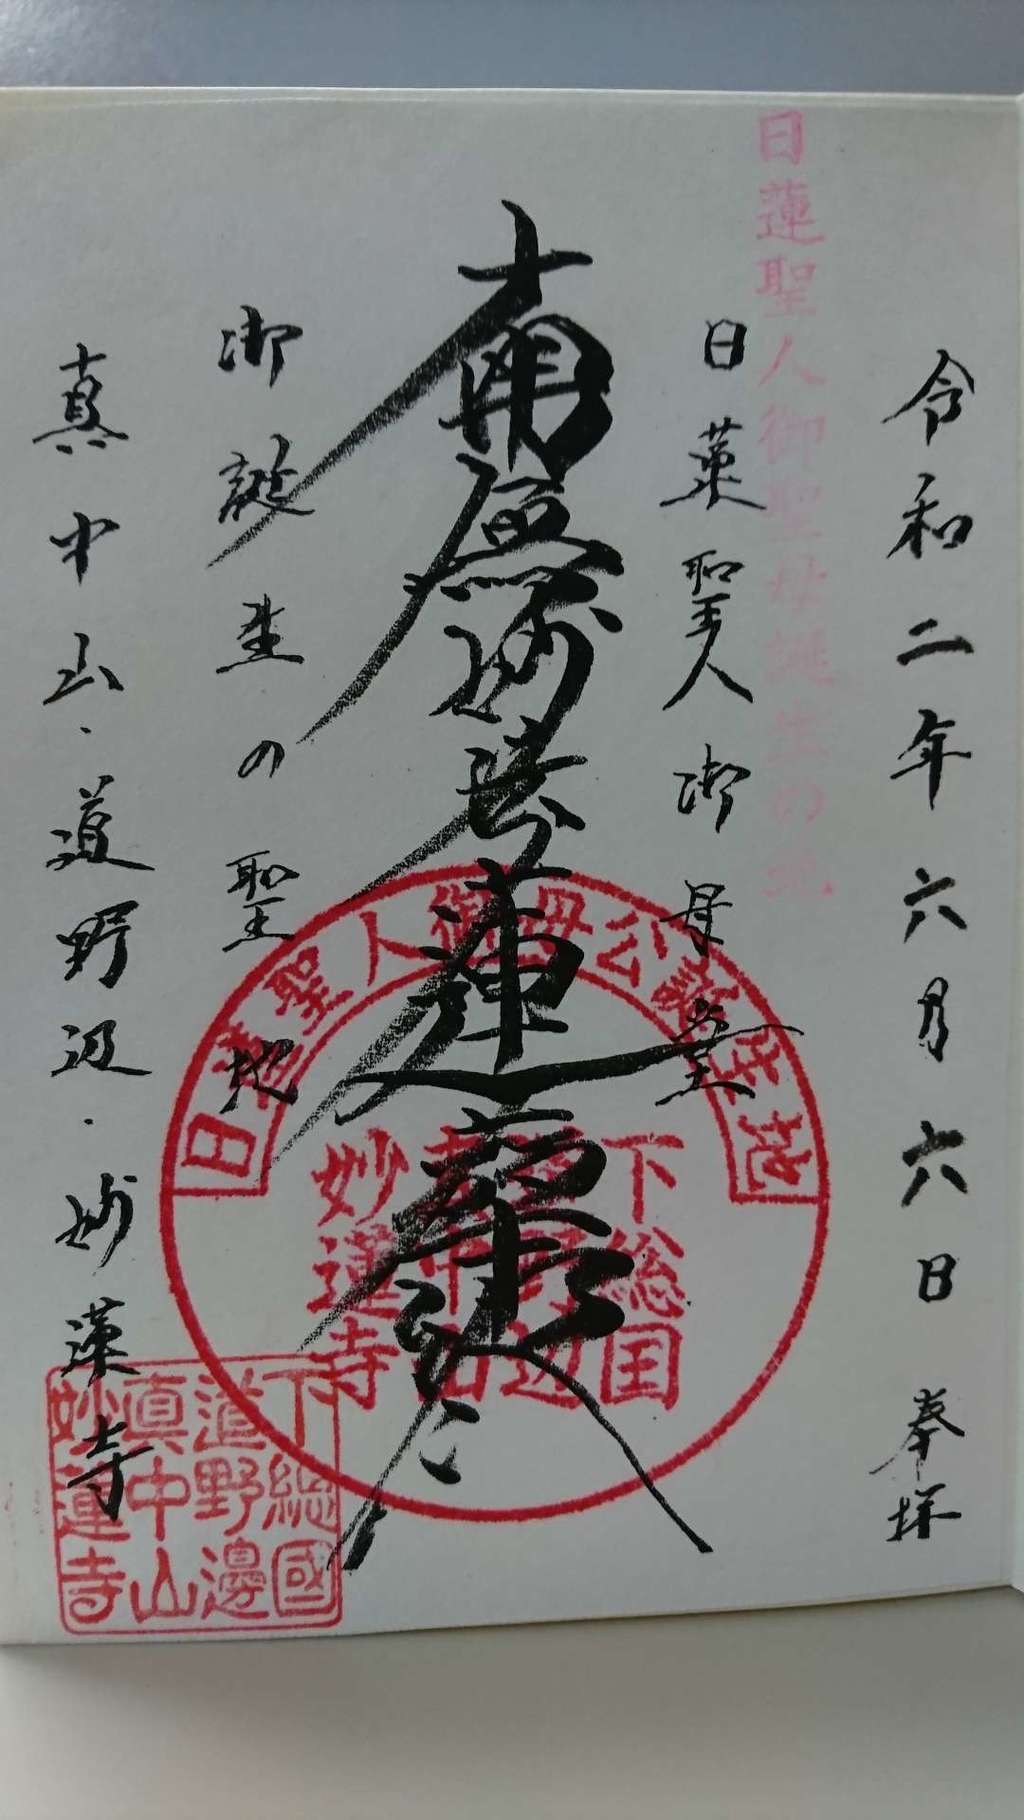 令和二年六月六日 奉拝
日蓮聖人御聖母誕生の地
日蓮聖人御母堂
南無妙法蓮華経
御誕生の聖地
真中山・道野辺・妙蓮寺
日蓮聖人御母公誕生地
下総国
道野辺
真中山
妙蓮寺
下總國
道野邊
真中山
妙蓮寺